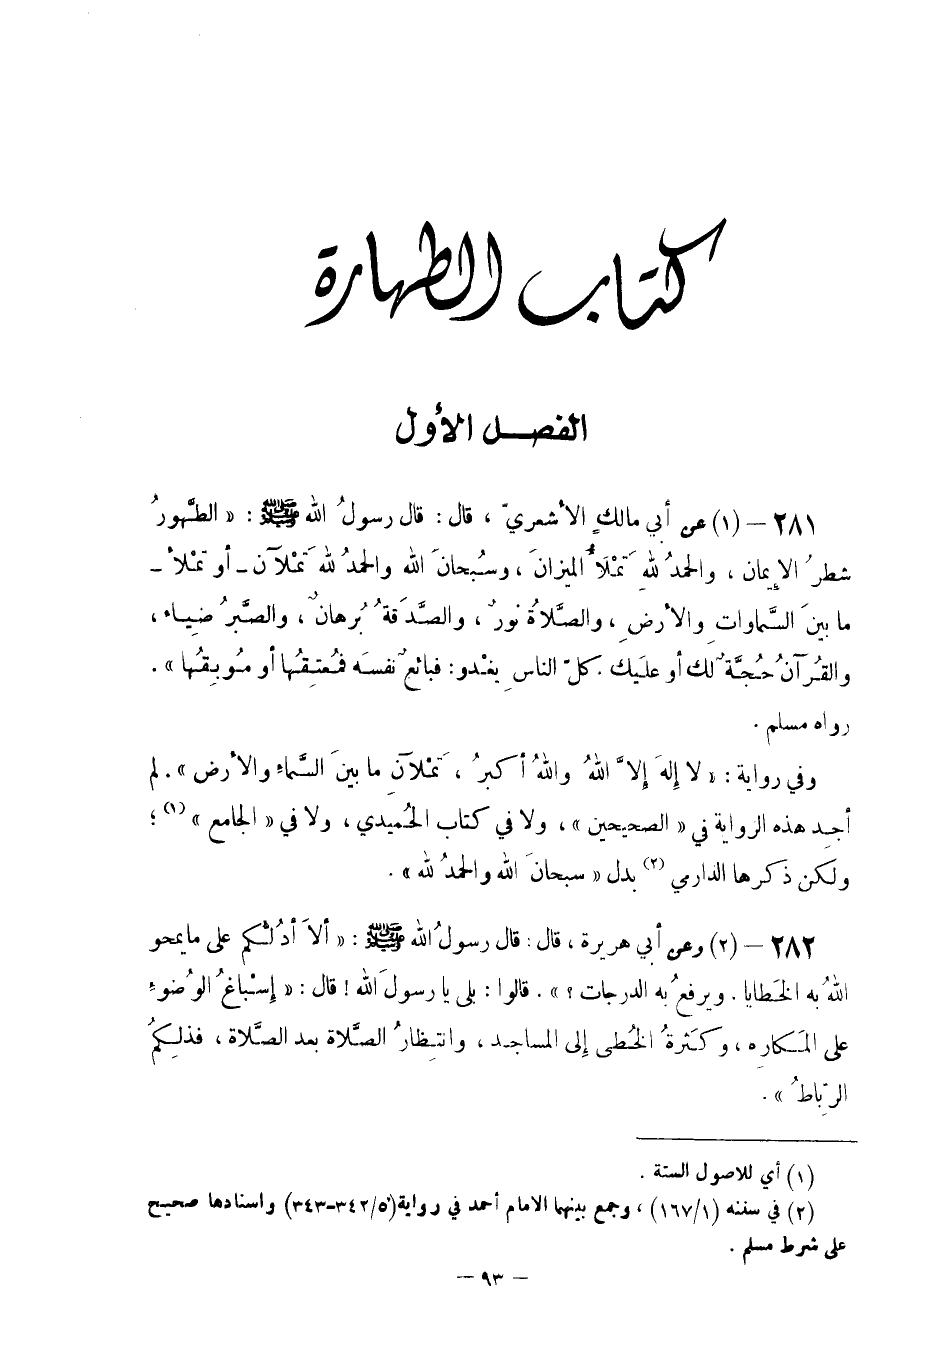 كتاب الطهارة
الفصل الأول
٢٨١ – (١) عن أبي مالكٍ الأشعريّ ، قال : قال رسولُ الله ﷺ : « الطَّهورُ
شطرُ الإيمان ، والحمدُ للهِ تَمْلَأُ الميزانَ ، وسُبحانَ الله والحمدُ لله تَمْلآن ـ أو تَملأ ـ
ما بينَ السَّماواتِ والأرضِ ، والصَّلاةُ نورٌ ، والصَّدَقةُ بُرهانٌ ، والصَّبرُ ضِياء ،
والقُرآنُ حُجَّةٌ لك أو عليك . كلّ الناسِ يغْدو : فبائعٌ نفسَه فمُعتِقُها أو مُوبِقُها » .
رواه مسلم .
وفي رواية : « لا إلهَ إلاَّ اللهُ واللهُ أكبرُ ، تَمْلآنِ ما بينَ السَّماءِ والأرض » . لم
أجد هذه الرواية في « الصحيحين » ، ولا في كتاب الحُميدي ، ولا في « الجامع » (١) ؛
ولكن ذكرها الدارمي (٢) بدل « سبحانَ الله والحمدُ لله » .
٢٨٢ – (٢) وعن أبي هريرة ، قال : قال رسولُ الله ﷺ : « ألاَ أدُلُّكم على ما يمحو
اللهُ به الخَطايا . ويرفعُ به الدرجات ؟ » . قالوا : بلى يا رسولَ الله ! قال : « إسْباغُ الوُضوءِ
على المَكارِه ، وكَثرةُ الخُطى إلى المساجد ، وانتِظارُ الصَّلاة بعد الصَّلاة ، فذلِكمُ
الرّباطُ » .
(١) أي للاصول الستة .
(٢) في سننه (١٦٧/١) ، وجمع بينهما الامام أحمد في رواية (٣٤٢/٥-٣٤٣) واسنادها صحيح
على شرط مسلم .
— ٩٣ —